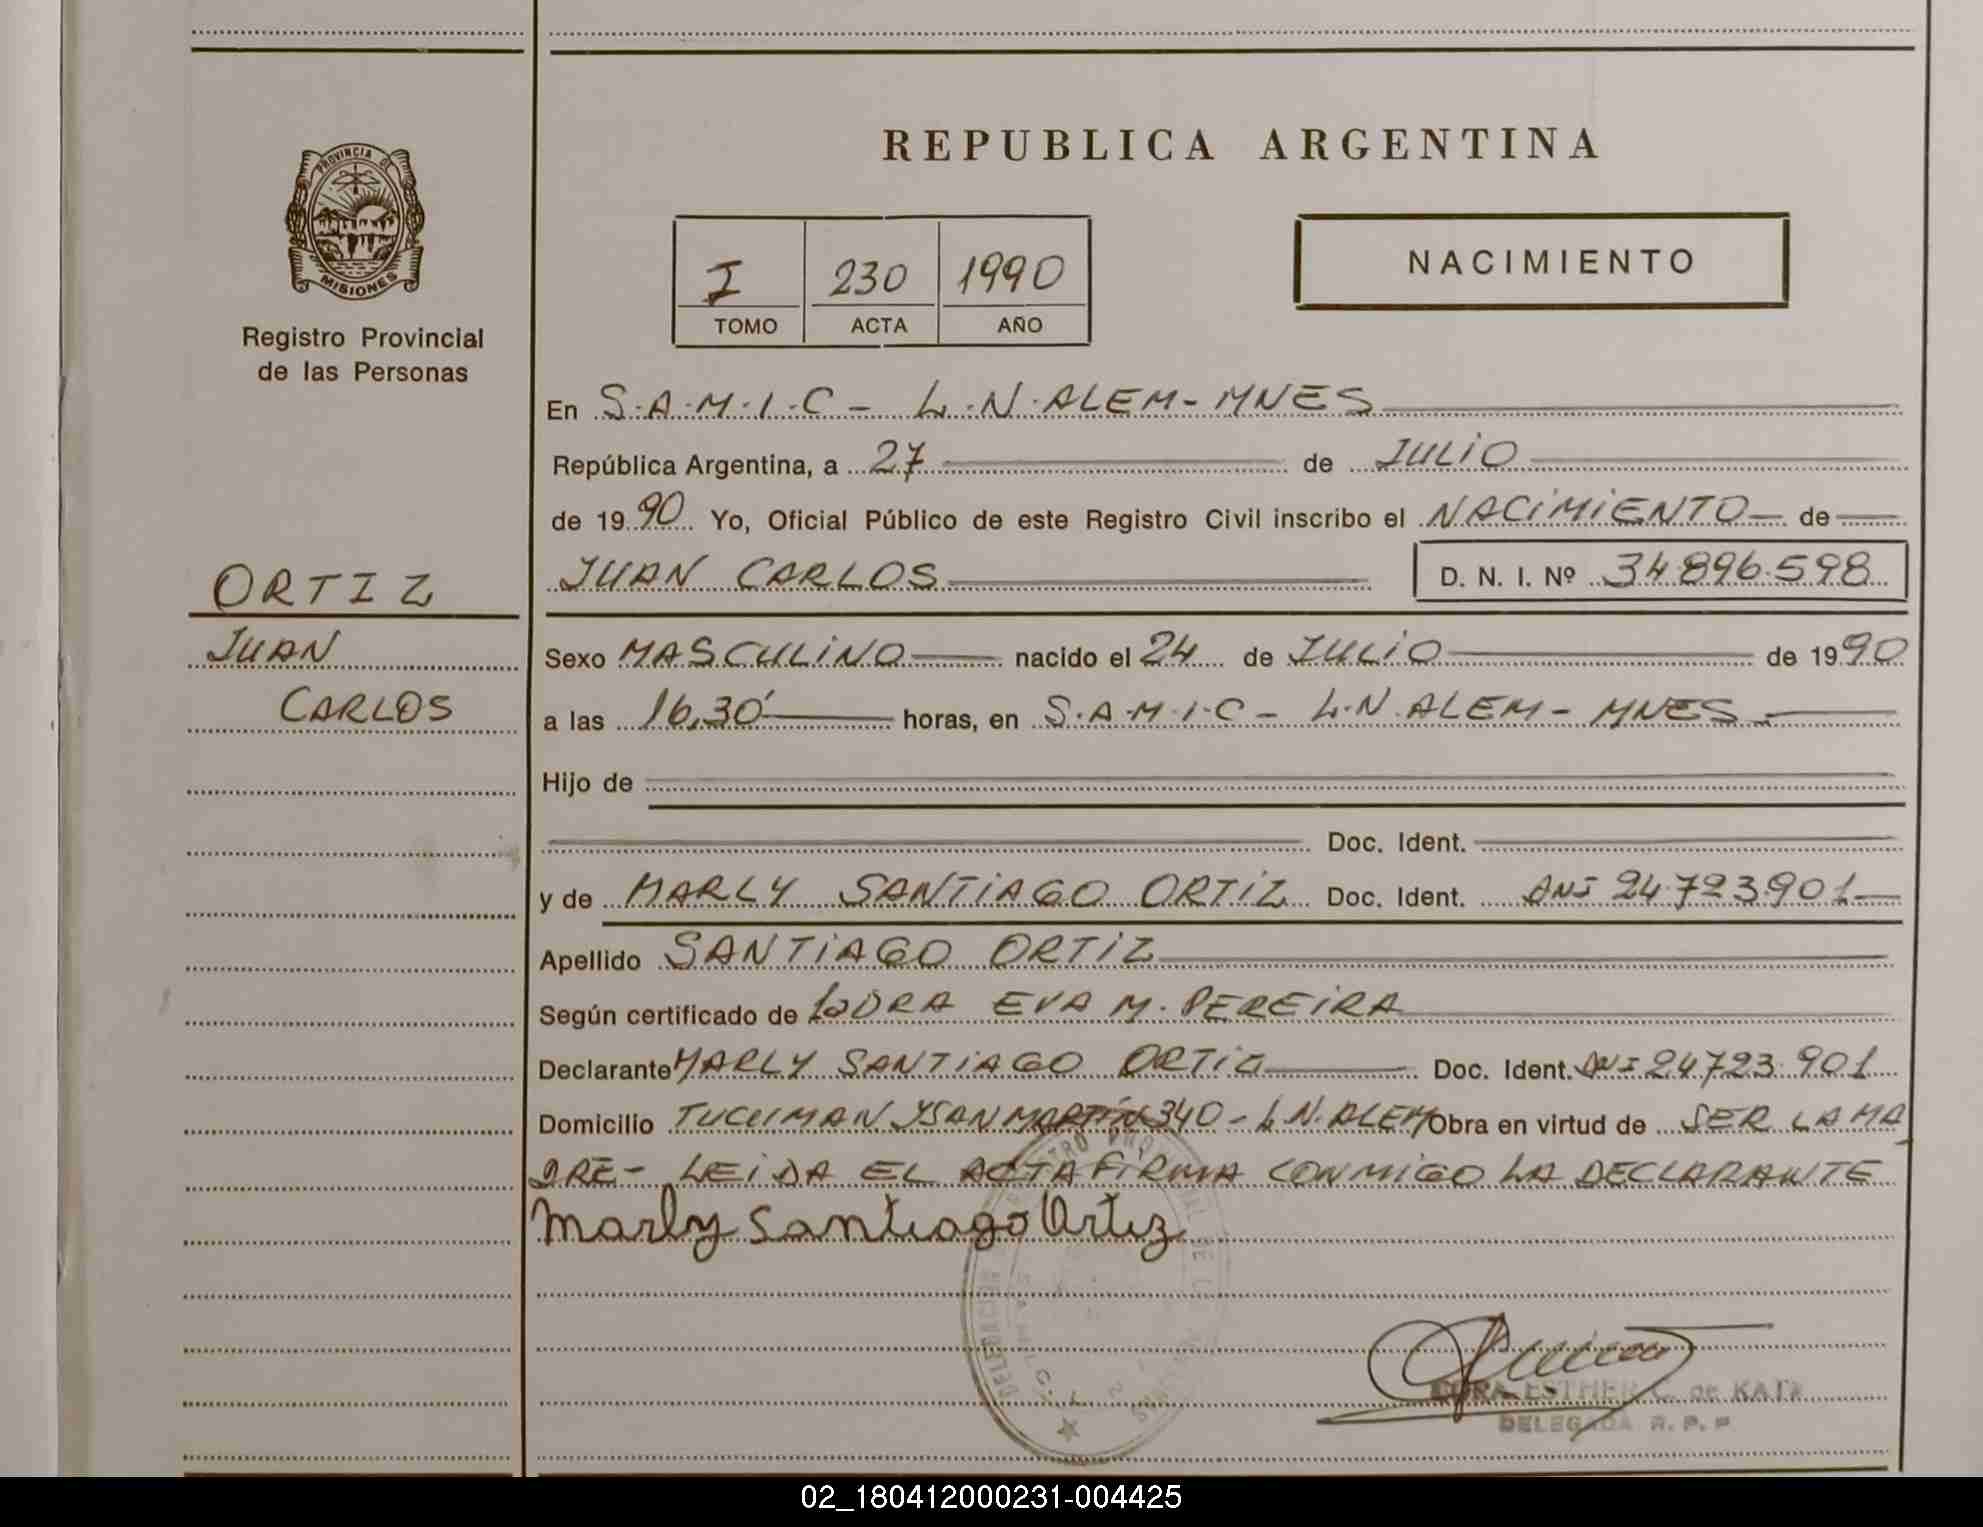 PROVINCIA DE
MISIONES
Registro Provincial
de las Personas
ORTIZ
JUAN
CARLOS
REPUBLICA ARGENTINA
I 230 1990
TOMO ACTA AÑO
NACIMIENTO
En S.A.M.I.C - L.N.ALEM-MNES
República Argentina, a 27 de JULIO
de 1990 Yo, Oficial Público de este Registro Civil inscribo el NACIMIENTO de
JUAN CARLOS D. N. I. Nº 34.896.598
Sexo MASCULINO nacido el 24 de JULIO de 1990
a las 16,30' horas, en S.A.M.I.C - L.N.ALEM - MNES
Hijo de
Doc. Ident.
y de MARLY SANTIAGO ORTIZ Doc. Ident. DNI 24.723.901
Apellido SANTIAGO ORTIZ
Según certificado de EVA M. PEREIRA
Declarante MARLY SANTIAGO ORTIZ Doc. Ident. DNI 24723.901
Domicilio TUCUMAN Y SAN MARTIN 340 - L.N.ALEM Obra en virtud de SER LA MA
DRE - LEIDA EL ACTA FIRMA CONMIGO LA DECLARANTE
Marly Santiago Ortiz
ESTHER C. de KATZ
DELEGADA R. P. P
02_180412000231-004425